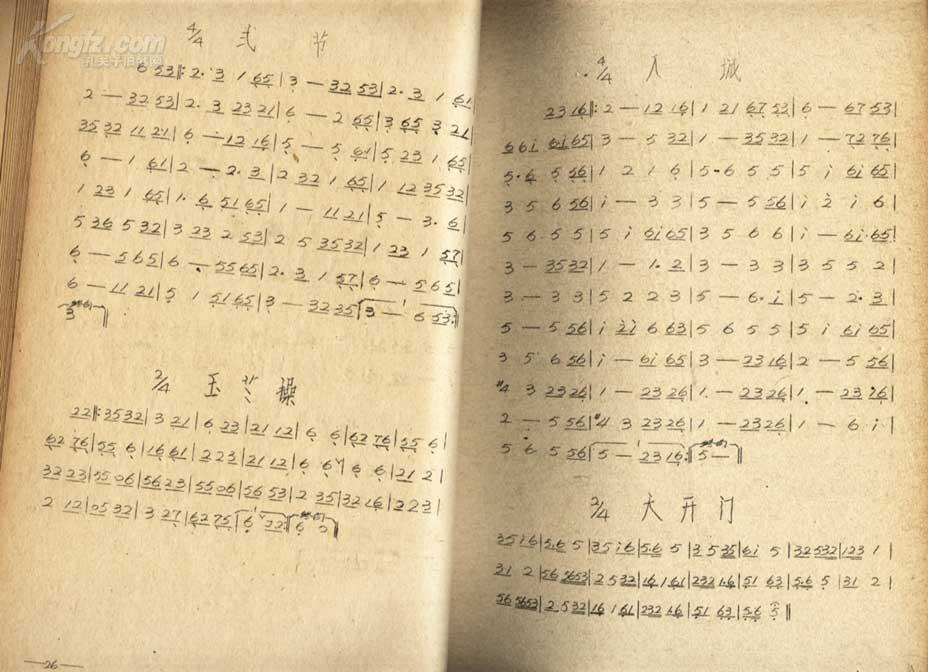 Kongfz.com
孔夫子旧书网
4/4 弍 节
6 53‖:2· 3 1 65|3 — 32 53|2· 3 1 61|
2 — 32 53|2· 3 23 21|6 — 2 65|3 65 3 21|
35 32 11 21|6 — 12 16|5 — 5 61|5 23 1 65|
6 — 1 61|2 — 2· 3|2 32 1 65|1 12 35 32|
1 23 1 65|1· 6 51 65|1 — 11 21|5 — 3· 6|
5 36 5 32|3 23 2 53|2 5 35 32|1 23 1 57|
6 — 5 6 5|6 — 55 65|2· 3 1 57|6 — 5 6 5|
6 — 11 21|5 1 51 65|3 — 32 35|3 — 6 53:‖
3 ‖
2/4 玉 操
22‖:35 32|3 21|6 23|21 12|6 6|62 76|55 6|
62 76|55 6|16 61|2 2 3|21 12|6 6|6 6|21 2|
32 23|55 06|56 23|55 06|56 53|2 35|32 16|2 2 3|
2 12|05 32|3 27|62 75|6 22:‖6 0‖
—26—
4/4 入 城
23 16‖:2 — 12 16|1 21 67 53|6 — 67 53|
66i 61 65|3 — 5 32|1 — 35 32|1 — 72 76|
5·6 5 56|1 2 1 6|5·6 5 5|5 i 6i 65|
3 5 6 56|i — 3 3|5 — 5 56|i 2 i 6|
5 6· 5 5|5 i 6i 65|3 5 6 6|i — 6i·65|
3 — 35 32|1 — 1· 2|3 — 3 3|3 5 5 2|
3 — 3 3|5 2 2 3|5 — 6· i|5 — 2· 3|
5 — 5 56|i 2i 6 63|5 6 5 5|5 i 6i 65|
3 5 6 56|i — 6i 65|3 — 23 16|2 — 5 56|
#4 3 23 26|1 — 23 26|1· — 23 26|1· — 23 16|
2 — 5 56|#4 3 23 26|1 — 23 26|1 — 6 i|
5 6 5 56|5 — 23 16:‖5 —‖
2/4 大 开 门
35 i6|56 5|35 i6|56 5|3 5 35|6i 5|32 532|123 1|
31 2|56 5653|2 5 32|16 161|232 16|51 63|56 5|31 2|
56 5653|2 5 32|16 161|232 16|51 63|56 5‖